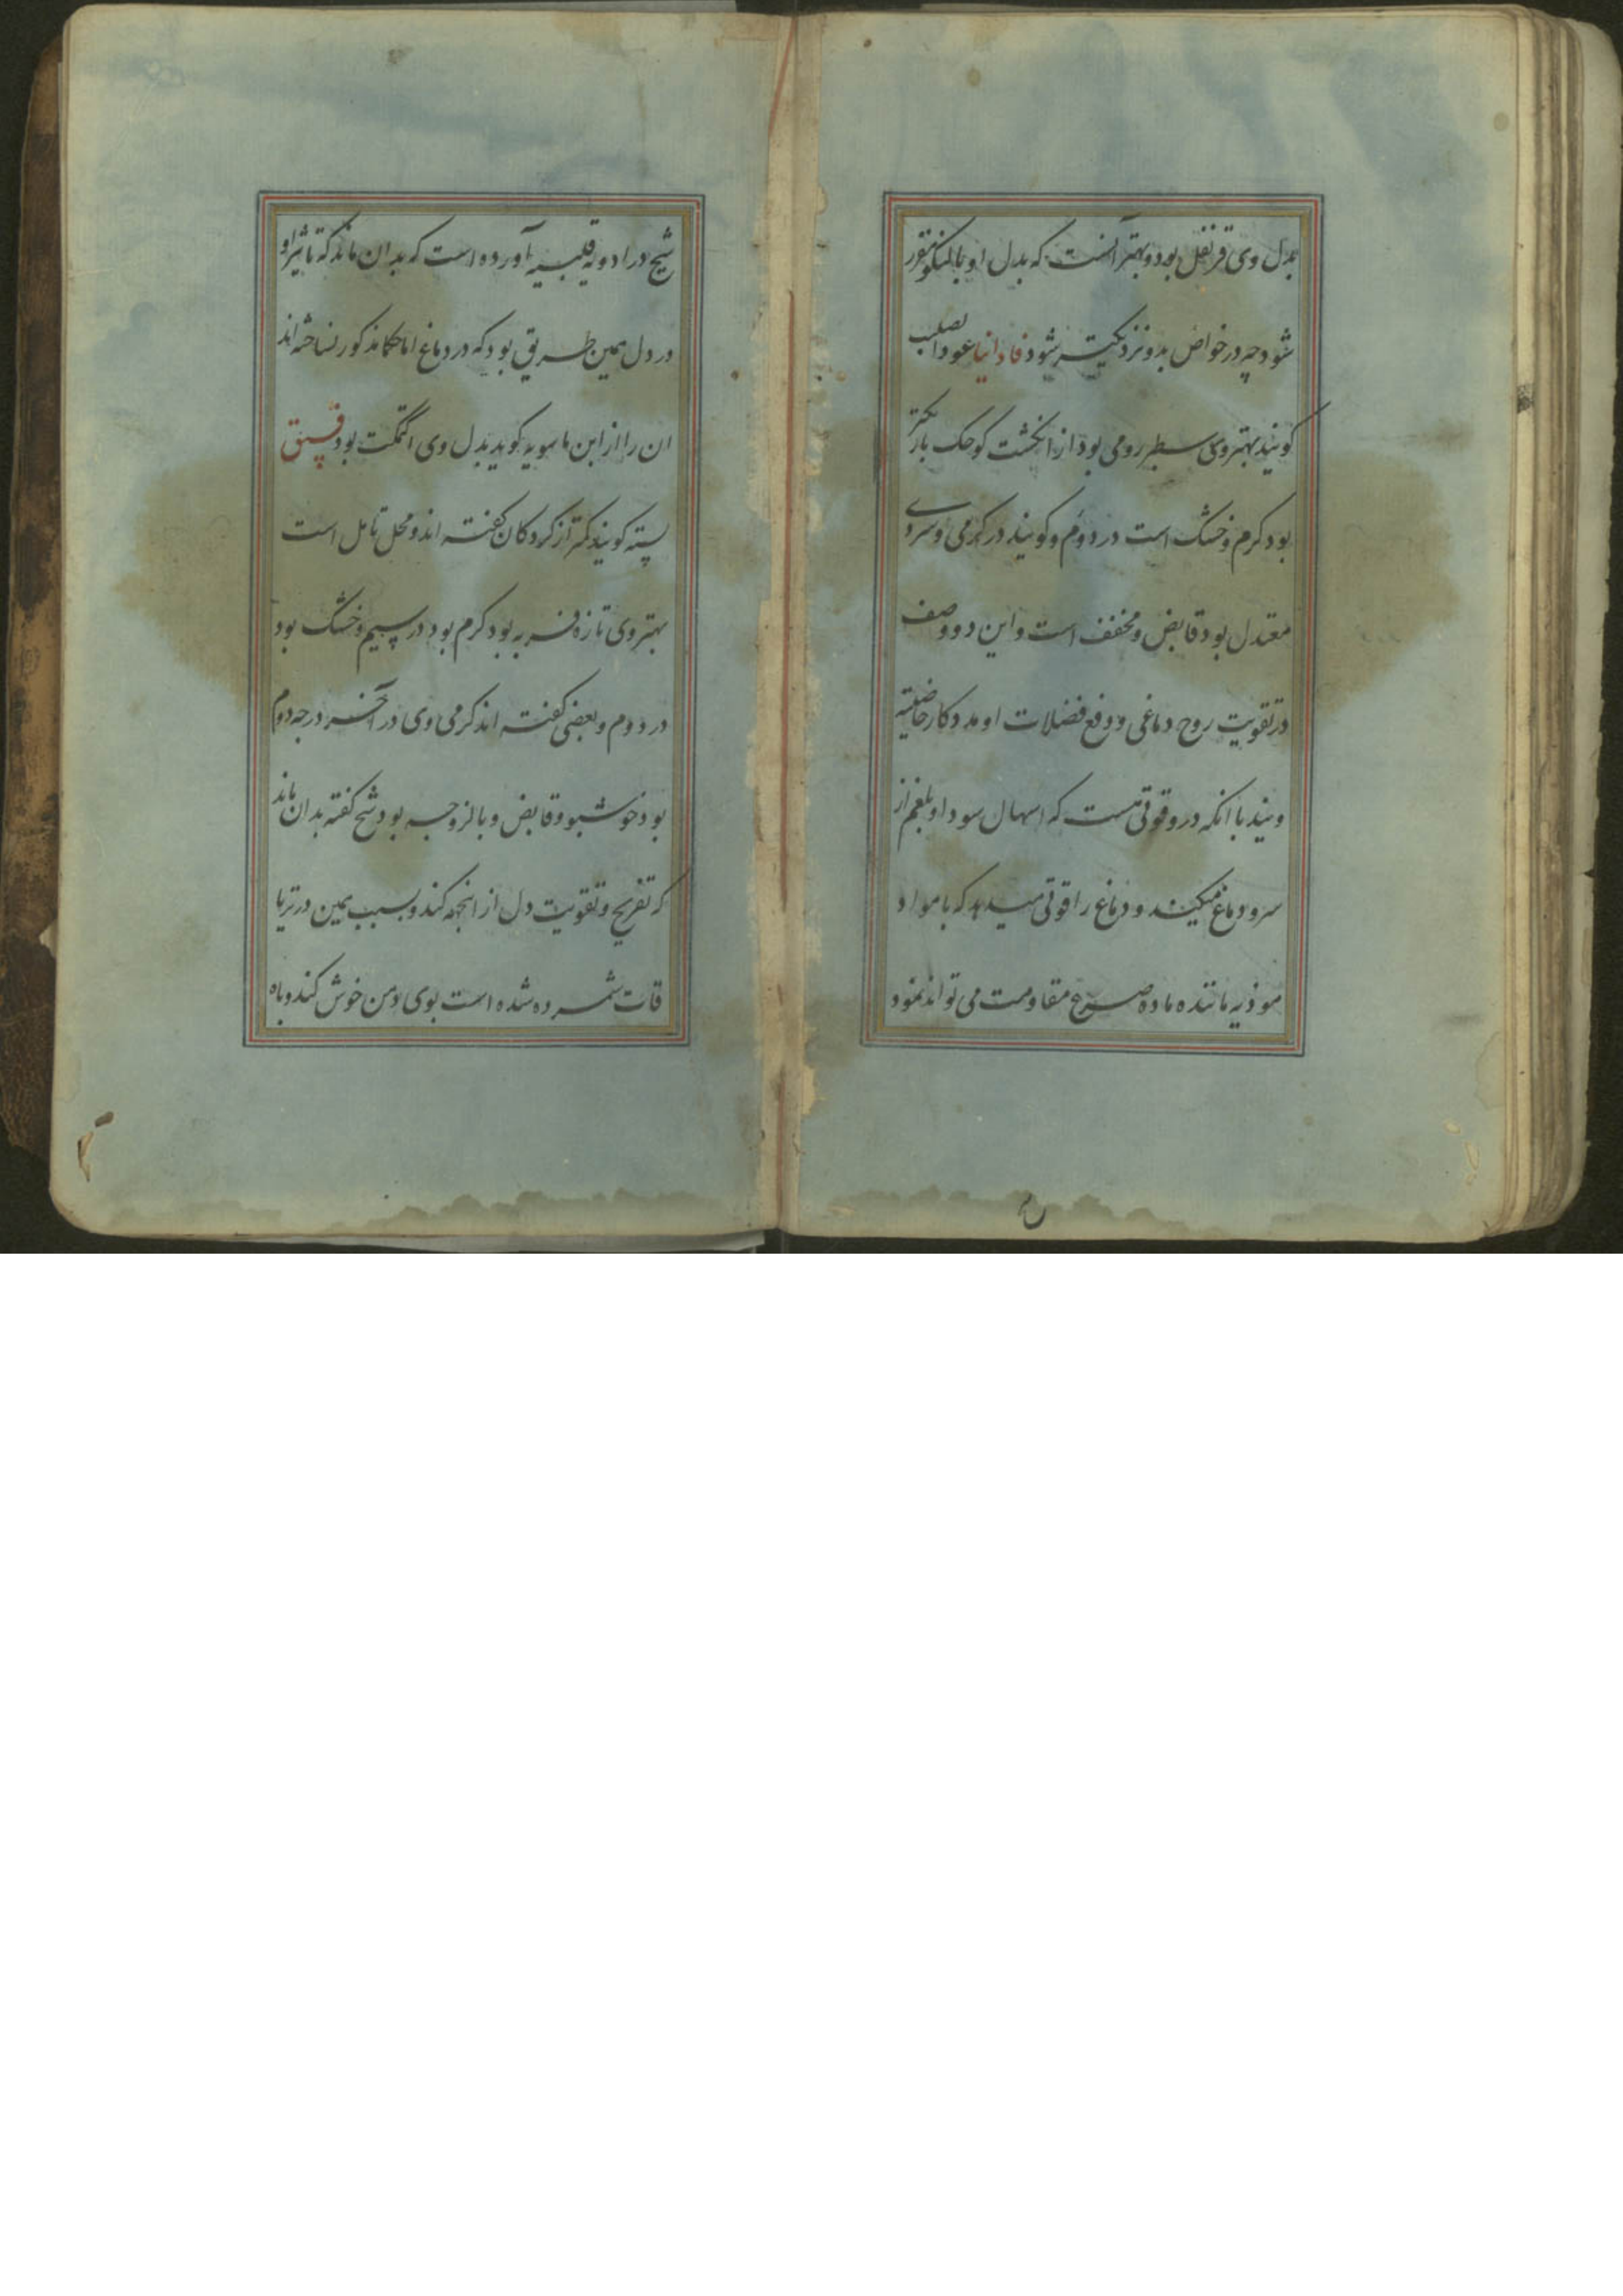 بدل وی قرنفل بود و بهتر آنست که بدل او بالنکو مقرر
شود چه در خواص بدو نزدیکتر شود فاوانیا عود الصلیب
کویند بهتر وی سطبر رومی بود از انکشت کوچک باریکتر
بود کرم و خشک است در دوم و کویند در کرمی و سردی
معتدل بود قابض و مخفف است و این دو وصف
در تقویت روح دماغی و دفع فضلات او مددکار خاصیته
ویند با انکه درو قوتی هست که اسهال سودا و بلغم از
سر و دماغ میکند و دماغ را قوتی میدهد که با مواد
موذیه مانند ماده صرع مقاومت می تواند نمود
شیخ در ادویه قلبیه آورده است که بدان ماند که تاثیر او
در دل همین طریق بود که در دماغ اما حکما مذکور نساخته اند
ان را از ابن ماسویه کوید بدل وی اکتمکت بود فستق
پسته کویند کمتر از کردکان کفته اند و محل تامل است
بهتر وی تازه فربه بود کرم بود در سیم و خشک بود
در دوم و بعضی کفته اند کرمی وی در آخر درجه دوم
بود خوشبو و قابض و با لزوجه بود شیخ کفته بدان ماند
که تفریح و تقویت دل از اینجهه کند و بسبب همین در تریا
قات شمرده شده است بوی دهن خوش کند و باه